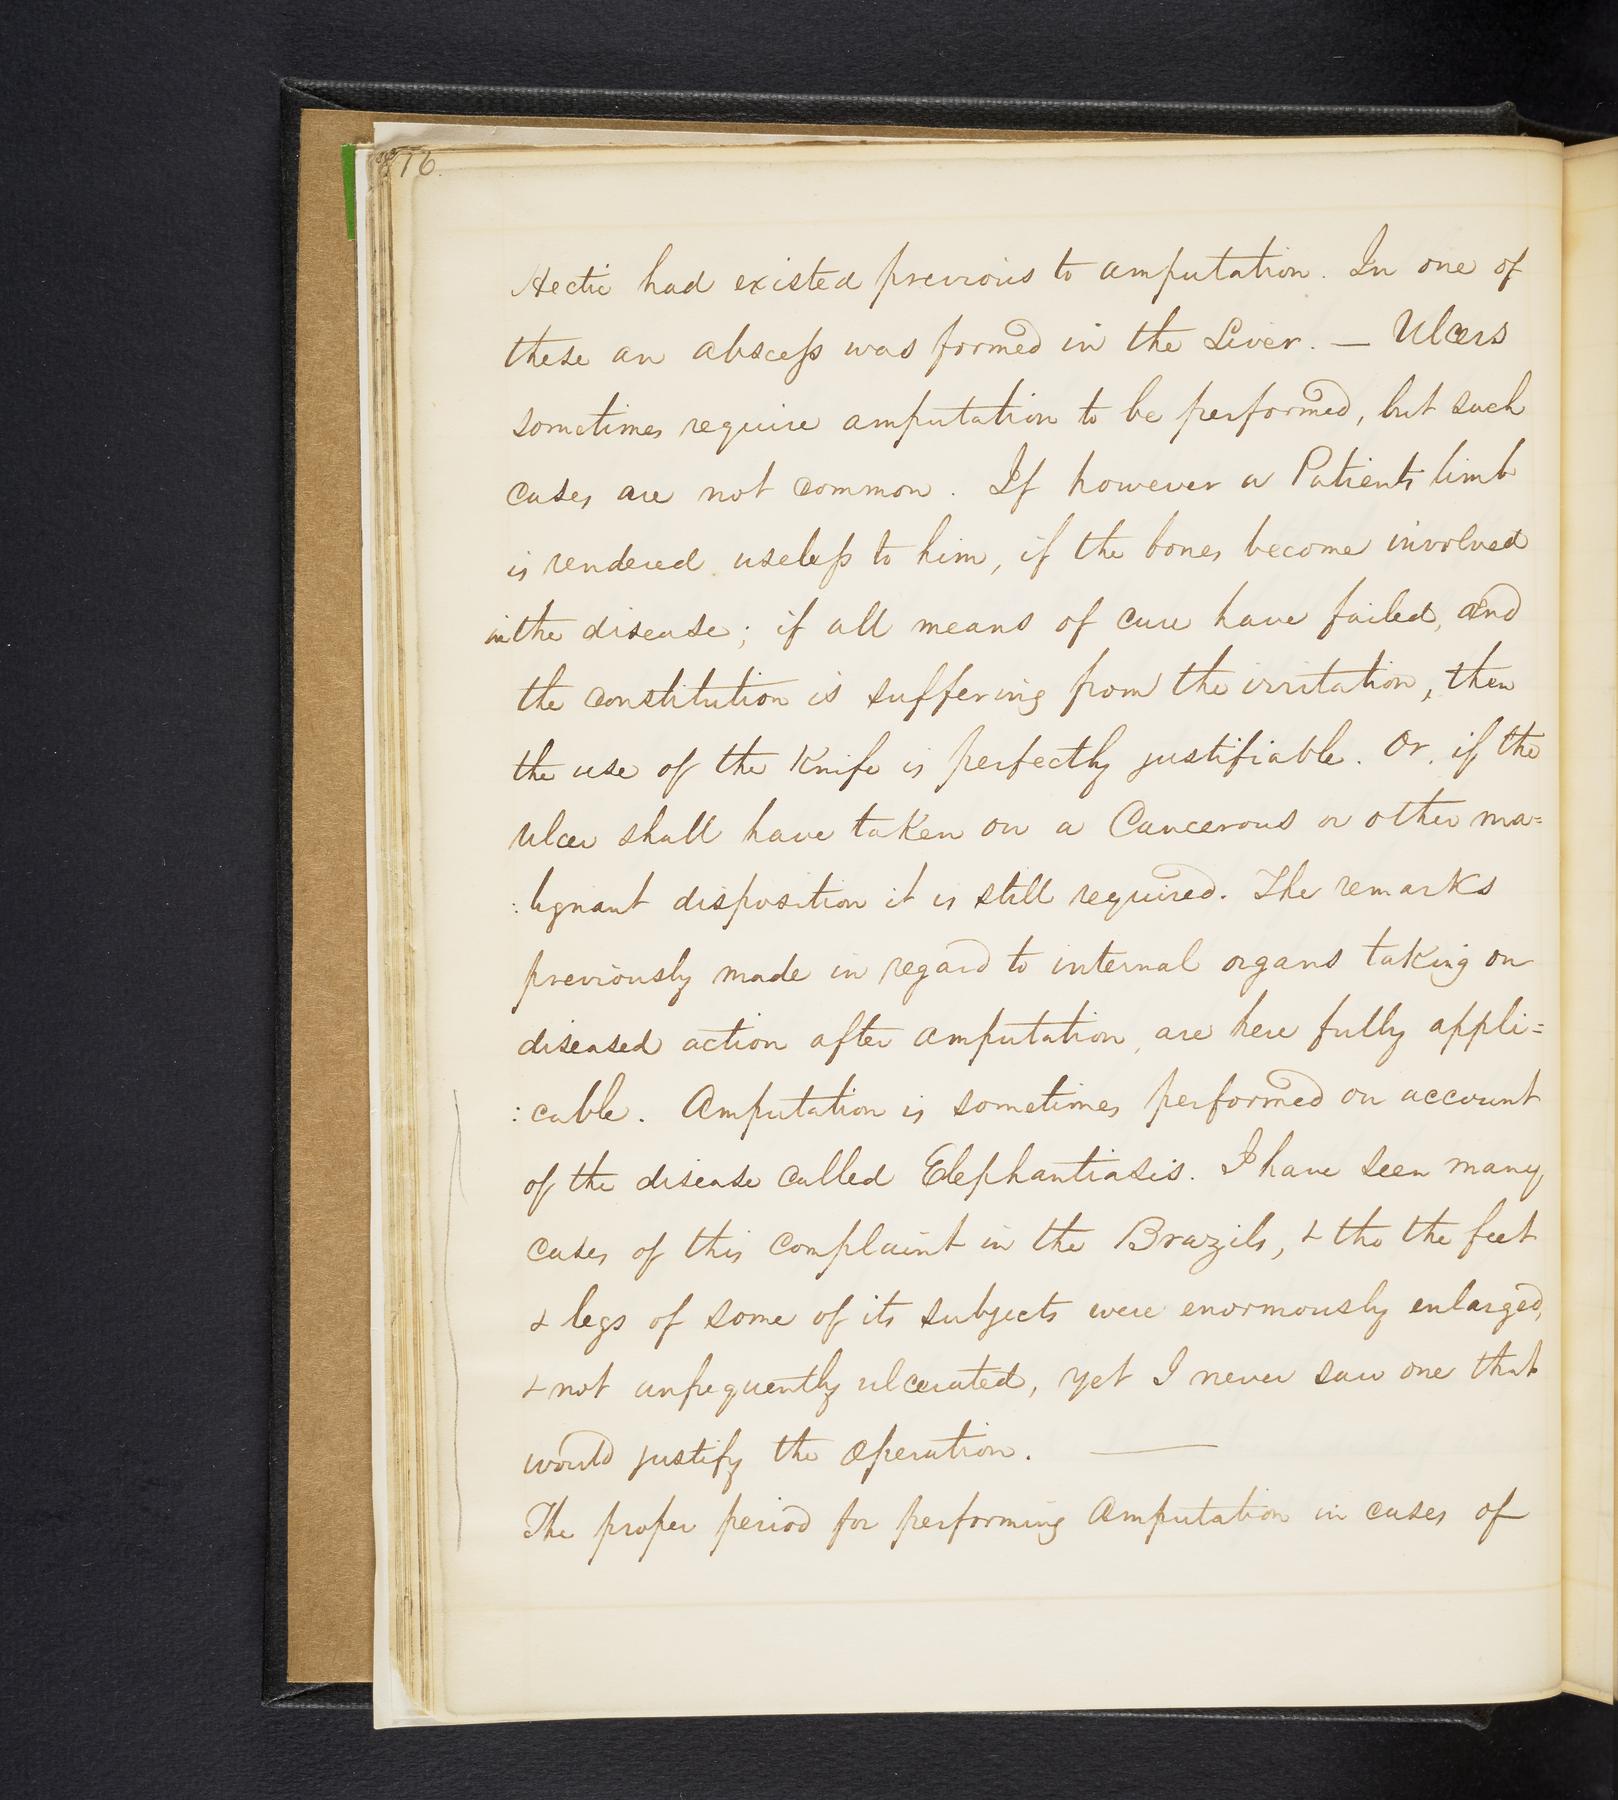 76.
Hectic had existed previous to amputation. In one of
these an abscess was formed in the Liver. — Ulcers
sometimes require amputation to be performed, but such
cases are not common. If however a Patients limb
is rendered useless to him, if the bones become involved
in the disease; if all means of cure have failed, and
the constitution is suffering from the irritation, then
the use of the Knife is perfectly justifiable. Or, if the
Ulcer shall have taken on a Cancerous or other ma=
:lignant disposition it is still required. The remarks
previously made in regard to internal organs taking on
diseased action after amputation, are here fully appli=
:cable. Amputation is sometimes performed on account
of the disease called Elephantiasis. I have seen many
cases of this complaint in the Brazils, & tho the feet
& legs of some of its subjects were enormously enlarged,
& not unfrequently ulcerated, yet I never saw one that
would justify the operation. —
The proper period for performing Amputation in cases of